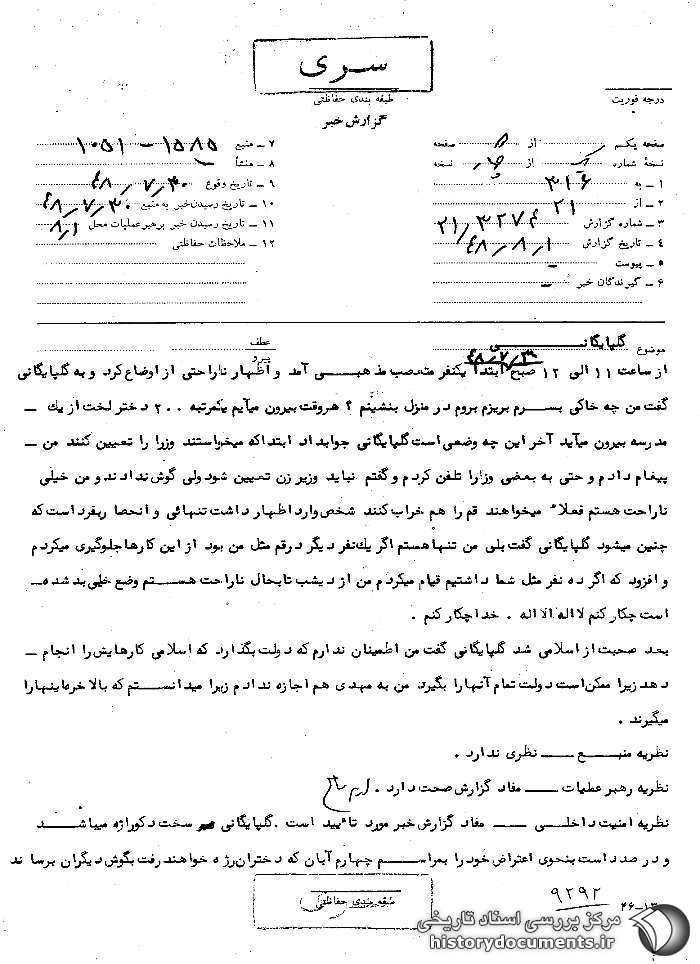 سری
طبقه بندی حفاظتی
درجه فوریت
گزارش خبر
صفحه یکم از ۵ صفحه
نسخهٔ شماره یک از چهار نسخه
۱ – به ۳۱۶
۲ – از ۲۱
۳ – شماره گزارش ۲۱/۳۲۷۴
۴ – تاریخ گزارش ۴۸/۸/۱
۵ – پیوست –
۶ – گیرندگان خبر –
۷ – منبع ۱۵۸۵ – ۱۰۵۱
۸ – منشأ
۹ – تاریخ وقوع ۴۸/۷/۳۰
۱۰ – تاریخ رسیدن خبر به منبع ۴۸/۷/۳۰
۱۱ – تاریخ رسیدن خبر برهبر عملیات محل ۸/۱
۱۲ – ملاحظات حفاظتی
موضوع گلپایگانی
عطف
پیرو
۴۸/۷/۳۰
از ساعت ۱۱ الی ۱۲ صبح ابتدا یکنفر متعصب مذهبی آمد و اظهار ناراحتی از اوضاع کرد و به گلپایگانی
گفت من چه خاکی بسرم بریزم بروم در منزل بنشینم ؟ هروقت بیرون میآیم یکمرتبه ۲۰۰ دختر لخت از یك –
مدرسه بیرون میآید آخر این چه وضعی است گلپایگانی جوابداد ابتدا که میخواستند وزرا را تعیین کنند من –
پیغام دادم و حتی به بعضی وزارا تلفن کردم و گفتم نباید وزیر زن تعیین شود ولی گوش ندادند و من خیلی
ناراحت هستم فعلاً میخواهند قم را هم خراب کنند شخص وارد اظهار داشت تنهائی و انحصار بفرد است که
چنین میشود گلپایگانی گفت بلی من تنها هستم اگر یك نفر دیگر در قم مثل من بود از این کارها جلوگیری میکردم
و افزود که اگر ده نفر مثل شما داشتیم قیام میکردم من از دیشب تابحال ناراحت هستم وضع خیلی بد شده –
است چکار کنم لا اله الا اله . خدا چکار کنم .
بعد صحبت از اسلامی شد گلپایگانی گفت من اطمینان ندارم که دولت بگذارد که اسلامی کارهایش را انجام –
دهد زیرا ممکن است دولت تمام آنها را بگیرد من به مهدی هم اجازه ندادم زیرا میدانستم که بالاخره اینها را
میگیرند .
نظریه منبع – نظری ندارد .
نظریه رهبر عملیات – مفاد گزارش صحت دارد .
نظریه امنیت داخلی – مفاد گزارش خبر مورد تائید است . گلپایگانی سخت دکوراژه میباشد
و در صدد است بنحوی اعتراض خود را بمراسم چهارم آبان که دختران رژه خواهند رفت بگوش دیگران برساند
طبقه بندی حفاظتی
۹۲۹۲
۴۶–۱۳
مرکز بررسی اسناد تاریخی
historydocuments.ir